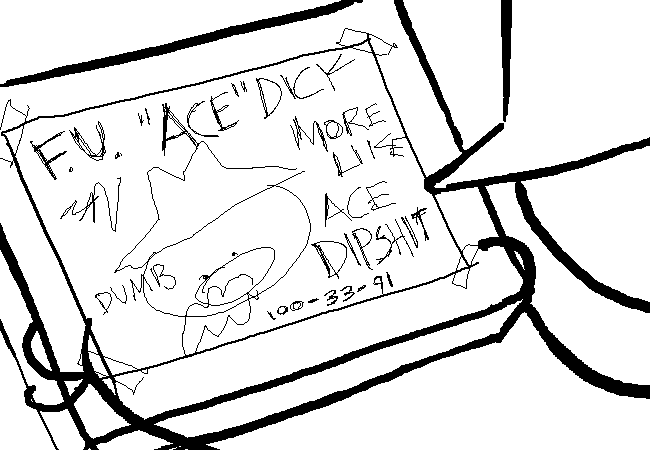 F.U. "ACE" DICK
MORE
LIKE
ACE
DIPSHIT
DUMB
100-33-91